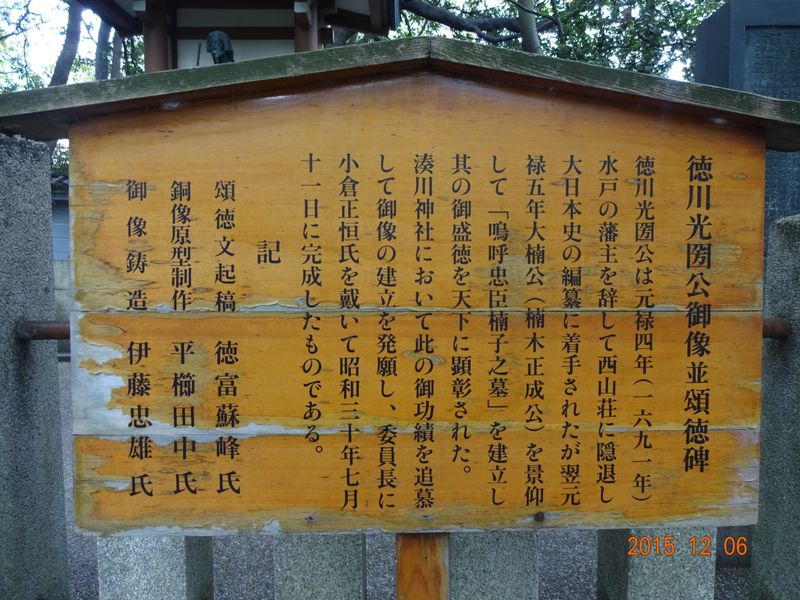 徳川光圀公御像並頌徳碑
徳川光圀公は元禄四年(一六九一年)
水戸の藩主を辞して西山荘に隠退し
大日本史の編纂に着手されたが翌元
禄五年大楠公(楠木正成公)を景仰
して「嗚呼忠臣楠子之墓」を建立し
其の御盛徳を天下に顕彰された。
湊川神社において此の御功績を追慕
して御像の建立を発願し、委員長に
小倉正恒氏を戴いて昭和三十年七月
十一日に完成したものである。
記
頌徳文起稿 徳富蘇峰氏
銅像原型制作 平櫛田中氏
御像鋳造 伊藤忠雄氏
2015.12.06